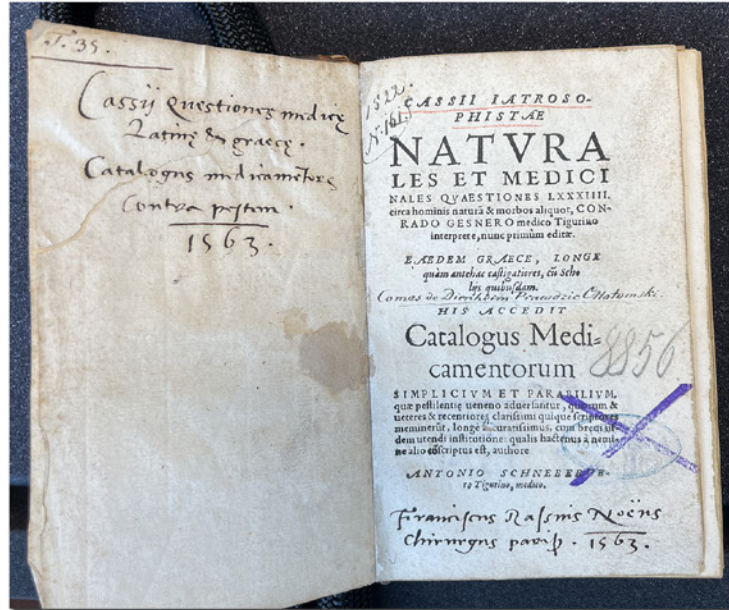 T. 35.
Cassij Questiones medicę
Latinę & graecę.
Catalogus medicamētorz
Contra pestem.
1563.
1522.
N. 161.
CASSII IATROSO-
PHISTAE
NATVRA
LES ET MEDICI
NALES QVAESTIONES LXXXIIII.
circa hominis naturā & morbos aliquot, CON-
RADO GESNERO medico Tigurino
interprete, nunc primùm editæ.
EAEDEM GRAECE, LONGE
quàm antehac castigatiores, cū Scho
lijs quibusdam.
Comes de
HIS ACCEDIT
Catalogus Medi=
camentorum
8856
SIMPLICIVM ET PARABILIVM,
quæ pestilentię ueneno aduersantur, quorum &
ueteres & recentiores clarissimi quique scriptores
meminerūt, longè accuratissimus, cum breui in-
dem utendi institutione: qualis hactenus à nemi-
ne alio cōscriptus est, authore
ANTONIO SCHNEEBER-
ro Tigurino, medico.
Franciscus Rassius Noëns
Chirurgus paris. 1563.